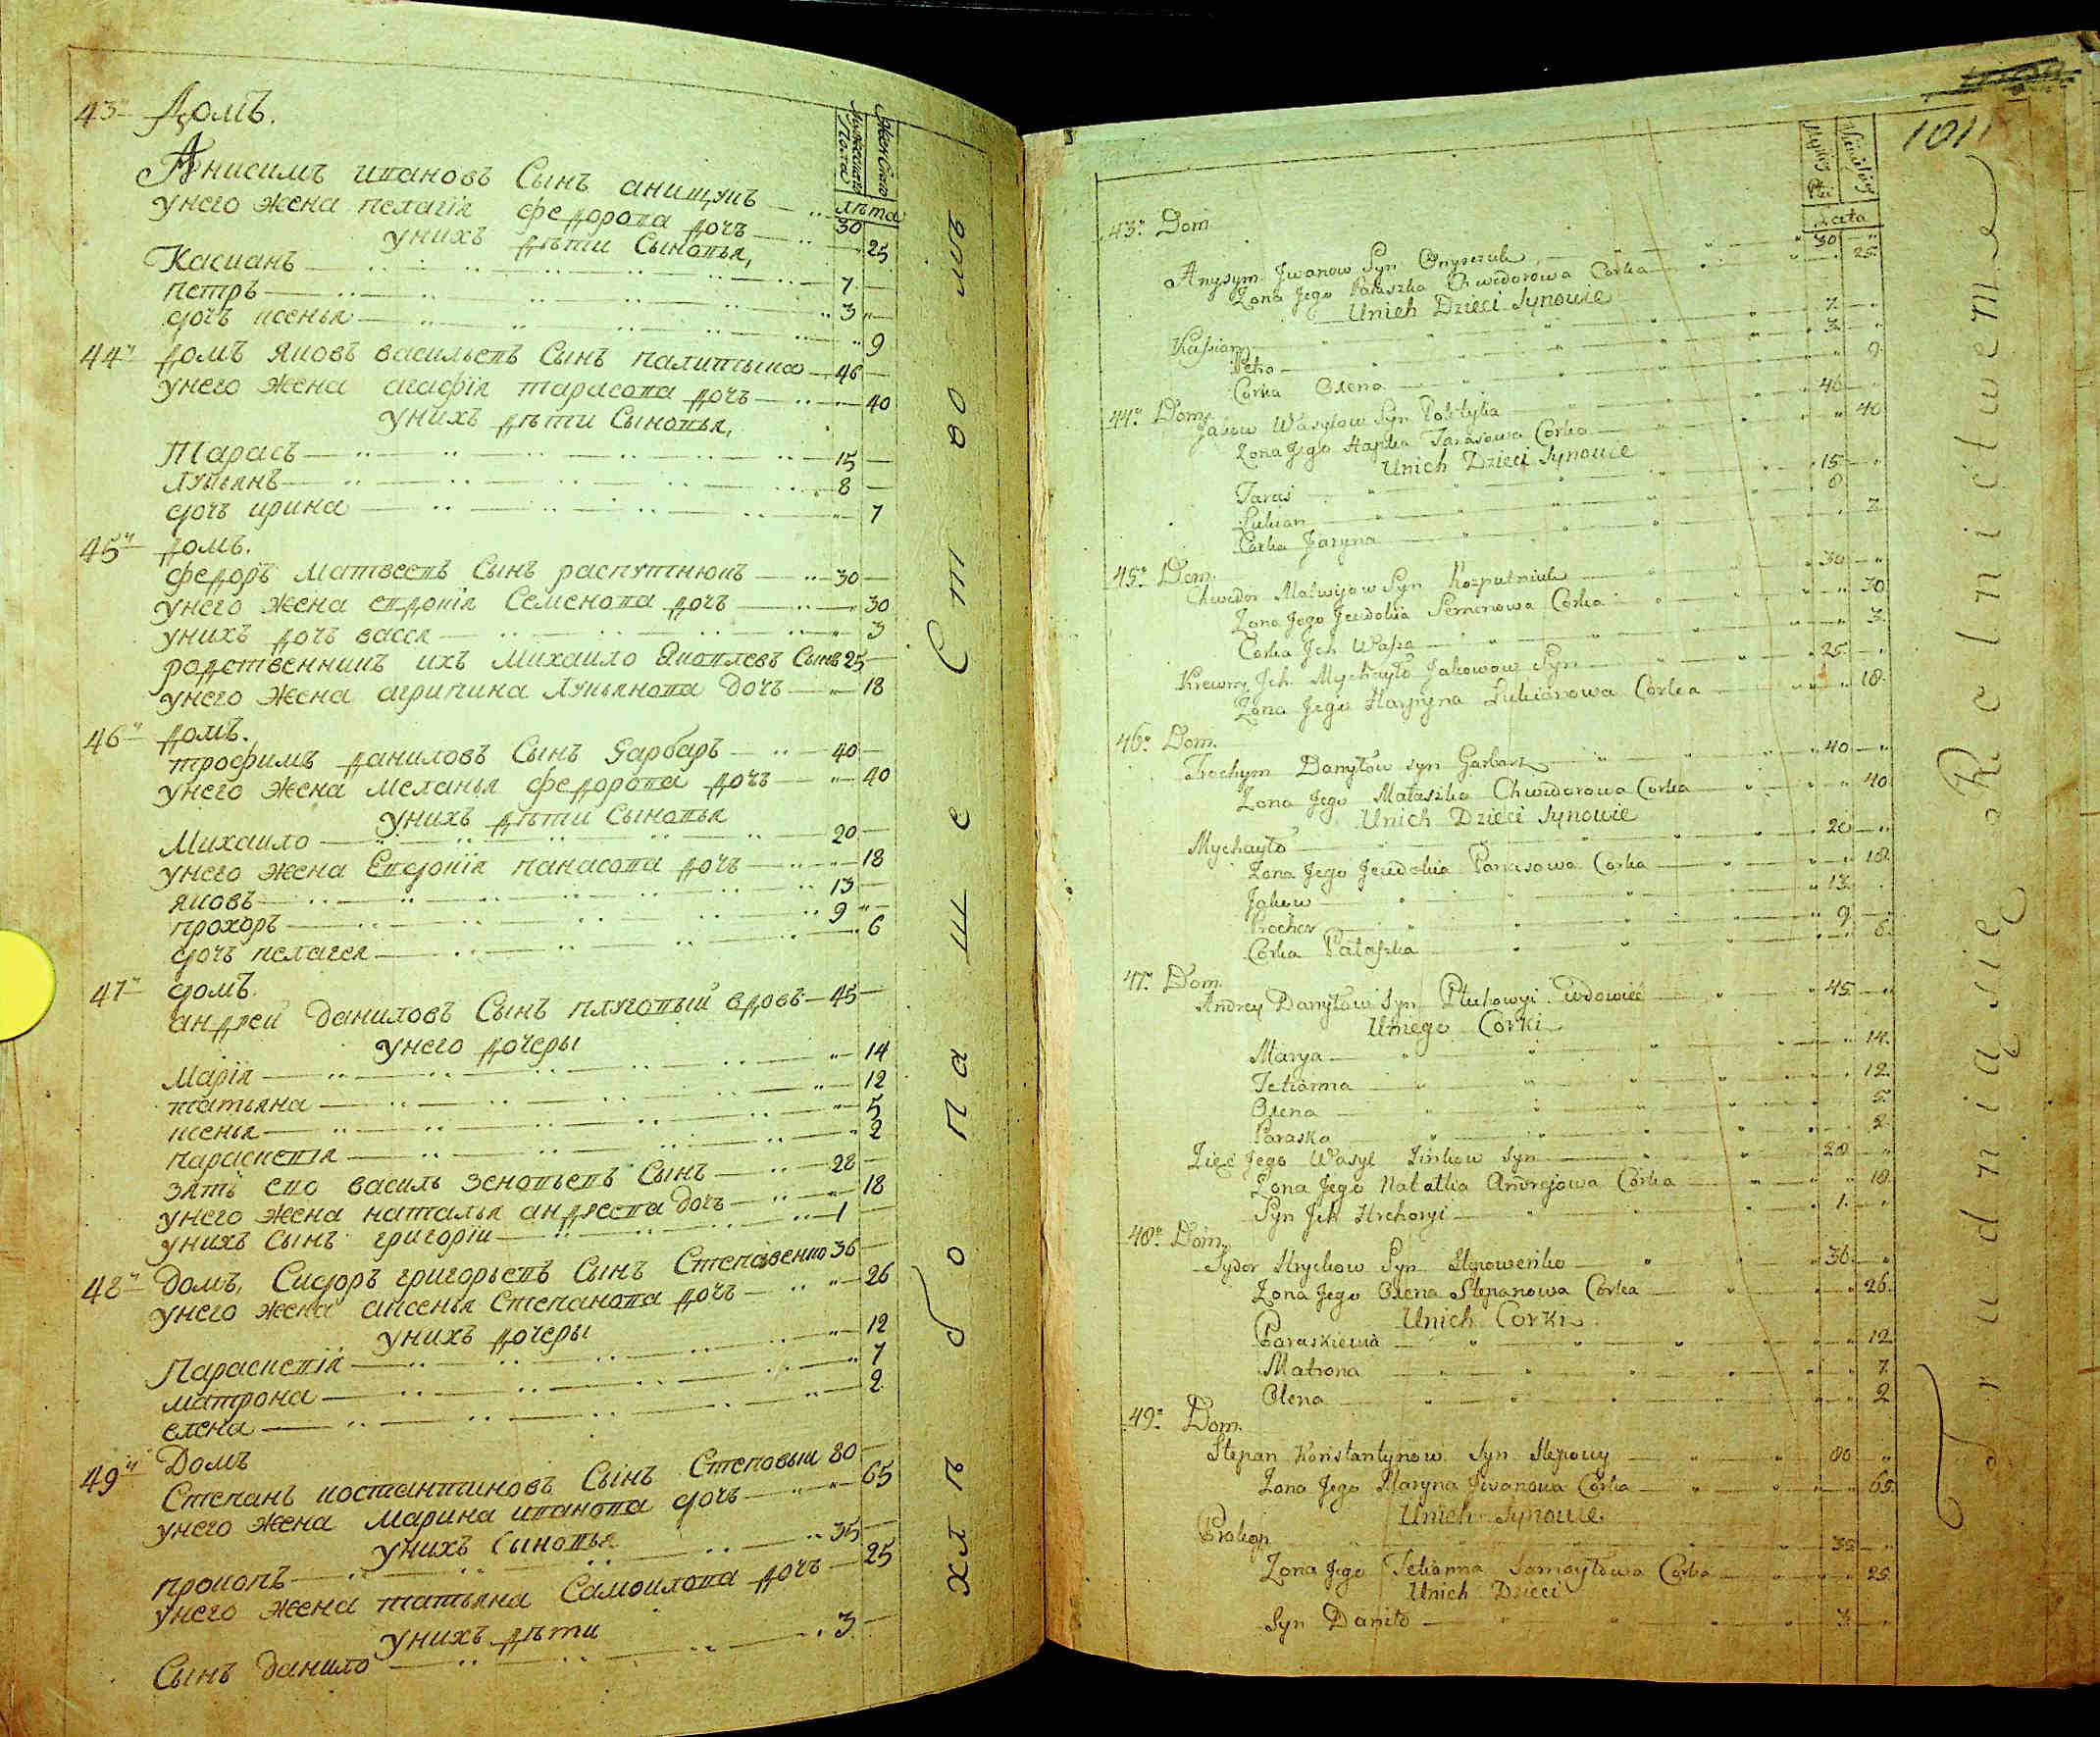 Мужеска Пола
Женскаго
лѣта
43й Домъ.
Анисимъ ивановъ Сынъ анищукъ 30
унего жена пелагія федорова дочъ 25
унихъ дѣти Сыновья,
Касианъ 7
петръ 3
дочъ ксенья 9
44й домъ яковъ васильевъ Сынъ палитыка 46
унего жена агафія тарасова дочъ 40
унихъ дѣти Сыновья,
Тарасъ 15
Лукьянъ 8
дочъ ирина 7
45й домъ.
федоръ матвеевъ Сынъ распутнюкъ 30
унего жена евдокія Семенова дочъ 30
унихъ дочъ васса 3
родственникъ ихъ михаило Яковлевъ Сынъ 25
унего жена агрипина Лукьянова дочъ 18
46й домъ.
трофимъ даниловъ Сынъ Гарбаръ 40
унего жена меланья федорова дочъ 40
унихъ дѣти Сыновья
Михаило 20
унего жена Евдокія панасова дочъ 18
яковъ 13
прохоръ 9
дочъ пелагея 6
47й домъ.
андреи даниловъ Сынъ плуговый вдовъ 45
унего дочеры
Марія 14
татьяна 12
ксенья 5
параскевія 2
зять его василь зеновьевъ Сынъ 28
унего жена наталья андреева дочъ 18
унихъ Сынъ григории 1
48й домъ, Сидоръ григорьевъ Сынъ Степовенко 36
унего жена аксенья Степанова дочъ 26
унихъ дочеры
Параскевія 12
матрона 7
елена 2
49й Домъ
Степанъ костантиновъ Сынъ Степовыи 80
унего жена марина иванова дочъ 65
унихъ Сыновья
прокопъ 35
унего жена татьяна Самоилова дочъ 25
унихъ дѣти
Сынъ данило 3
101
Lata
43o Dom
Anysym Jwanow Syn Onyszczuk 30
Zona Jego Pałaszka Chwedorowa Corka 25
Unich Dzieci Synowie
Kassian 7
Petro 3
Corka Oxena 9
44o Dom.
Jakow Wasylow Syn Politylia 46
Zona Jego Hapka Tarasowa Corka 40
Unich Dzieci Synowie
Taras 15
Lukian 8
Corka Jaryna 7
45o Dom.
Chwedor Matwijow Syn Rozputniuk 30
Zona Jego Jewdokia Semenowa Corka 30
Corka Jch Wassa 3
Krewny Jch Mychayło Jakowow Syn 25
Zona Jego Harpyna Lukianowa Corka 18
46o Dom.
Trochym Danyłow syn Garbarz 40
Zona Jego Małaszka Chwedorowa Corka 40
Unich Dzieci Synowie
Mychayło 20
Zona Jego Jewdokia Panasowa Corka 18
Jakow 13
Prochor 9
Corka Pałaszka 6
47o Dom.
Andrey Danyłow Syn Płuhowyi Wdowiec 45
Uniego Corki
Marya 14
Tetianna 12
Oxena 5
Paraska 2
Zięć Jego Wasyl Zinkow Syn 28
Zona Jego Natalka Andrejowa Corka 18
Syn Jch Hrehoryi 1
48o Dom.
Sydor Hryckow Syn Stepowenko 36
Zona Jego Oxena Stepanowa Corka 26
Unich Corki
Paraskiewia 12
Matrona 7
Olena 2
49o Dom.
Stepan Konstantynow Syn Stepowy 80
Zona Jego Maryna Jwanowa Corka 65
Unich Synowie
Prokop 35
Zona Jego Tetianna Samoyłowa Corka 25
Unich Dzieci
Syn Daniło 3